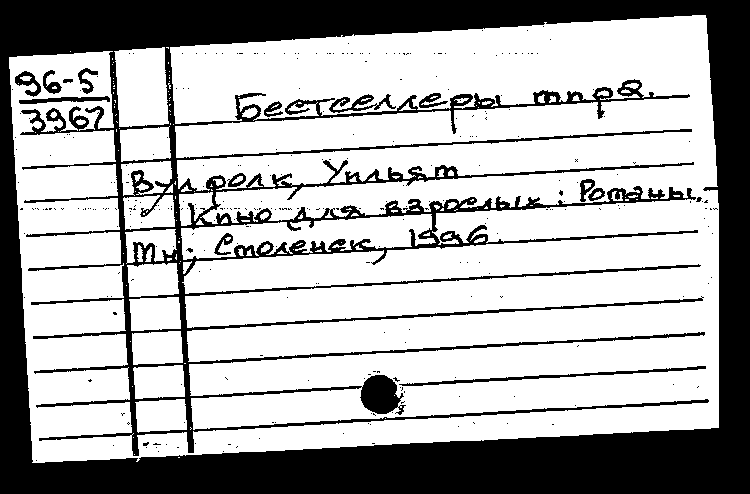 96-5
3967
Бестселлеры мира.
Вулфолк, Уильям
Кино для взрослых: Романы.-
Мн; Смоленск, 1996.